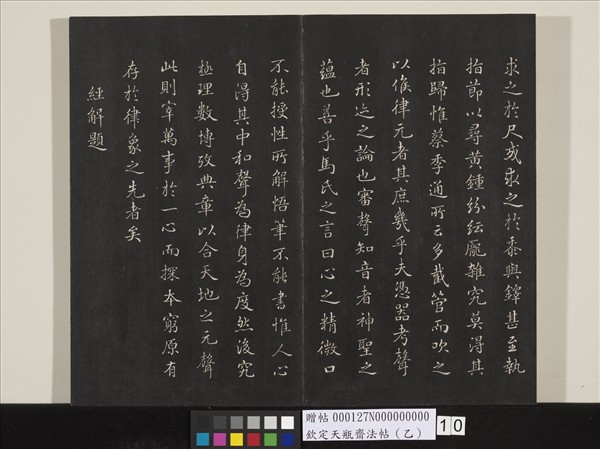 求之於尺或求之於黍與鐸甚至執
指節以尋黃鍾紛紜厖雜究莫得其
指歸惟蔡季通所云多截管而吹之
以俟律元者其庶幾乎夫憑器考聲
者形迹之論也審聲知音者神聖之
蘊也善乎馬氏之言曰心之精微口
不能授性所解悟筆不能書惟人心
自得其中和聲為律身為度然後究
極理數博攷典章以合天地之元聲
此則宰萬事於一心而探本窮原有
存於律象之先者矣
經解題
贈帖 000127N000000000
欽定天瓶齋法帖（乙）
10